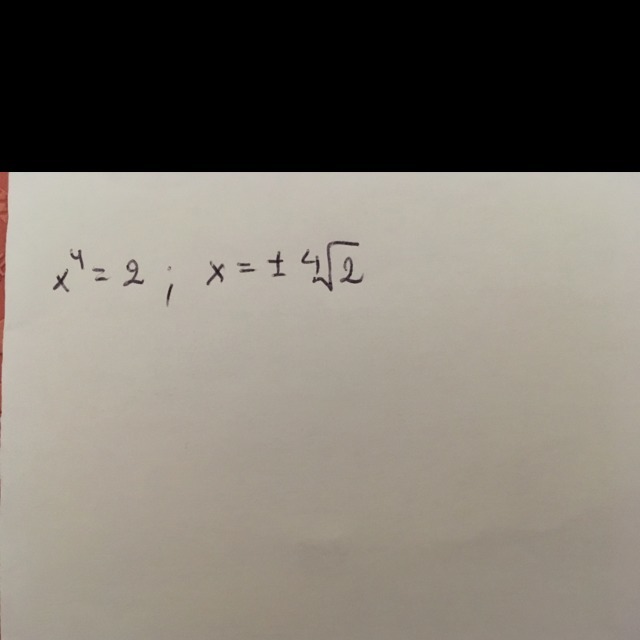 x⁴ = 2 ; x = ± ⁴√2